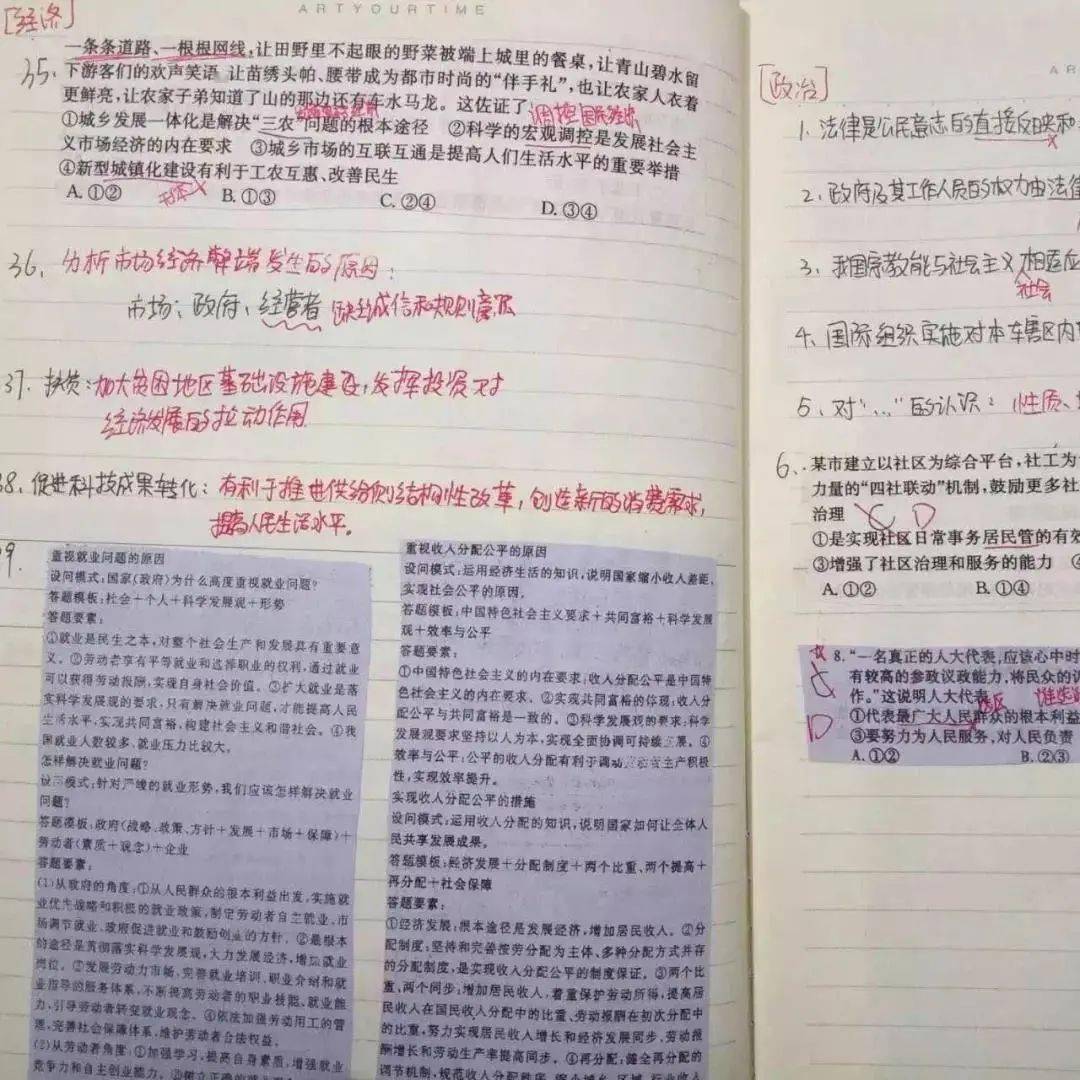 ARTYOURTIME
[经济]
35.
一条条道路、一根根网线,让田野里不起眼的野菜被端上城里的餐桌,让青山碧水留
下游客们的欢声笑语 让苗绣头帕、腰带成为都市时尚的“伴手礼”,也让农家人衣着
更鲜亮,让农家子弟知道了山的那边还有车水马龙。这佐证了 调控国民经济
①城乡发展一体化是解决“三农”问题的根本途径 ②科学的宏观调控是发展社会主
义市场经济的内在要求 ③城乡市场的互联互通是提高人们生活水平的重要举措
④新型城镇化建设有利于工农互惠、改善民生
A.①② B.①③ C.②④ D.③④
36. 分析市场经济弊端发生的原因:
市场;政府;经营者 缺乏诚信和规则意识
37. 扶贫:加大贫困地区基础设施建设,发挥投资对
经济发展的拉动作用
38. 促进科技成果转化:有利于推进供给侧结构性改革,创造新的消费需求,
提高人民生活水平。
9.
重视就业问题的原因
设问模式:国家(政府)为什么高度重视就业问题?
答题模板:社会+个人+科学发展观+形势
答题要素:
①就业是民生之本,对整个社会生产和发展具有重要意
义。②劳动者享有平等就业和选择职业的权利,通过就业
可以获得劳动报酬,实现自身社会价值。③扩大就业是落
实科学发展观的要求,只有解决就业问题,才能提高人民
生活水平,实现共同富裕,构建社会主义和谐社会。④我
国就业人数较多,就业压力比较大。
怎样解决就业问题?
设问模式:针对严峻的就业形势,我们应该怎样解决就业
问题?
答题模板:政府(战略、政策、方针+发展+市场+保障)+
劳动者(素质+观念)+企业
答题要素:
(1)从政府的角度:①从人民群众的根本利益出发,实施就
业优先战略和积极的就业政策,制定劳动者自主就业、市
场调节就业、政府促进就业和鼓励创业的方针。②最根本
的途径是贯彻落实科学发展观,大力发展经济,增加就业
岗位。③发展劳动力市场,完善就业培训、职业介绍和就
业指导的服务体系,不断提高劳动者的职业技能、就业能
力,引导劳动者转变就业观念。④依法加强劳动用工的管
理,完善社会保障体系,维护劳动者合法权益。
(2)从劳动者角度:①加强学习,提高自身素质,增强就业
竞争力和自主创业能力。②树立正确的
重视收入分配公平的原因
设问模式:运用经济生活的知识,说明国家缩小收入差距,
实现社会公平的原因。
答题模板:中国特色社会主义要求+共同富裕+科学发展
观+效率与公平
答题要素:
①中国特色社会主义的内在要求:收入分配公平是中国特
色社会主义的内在要求。②实现共同富裕的体现:收入分
配公平与共同富裕是一致的。③科学发展观的要求:科学
发展观要求坚持以人为本,实现全面协调可持续发展。④
效率与公平:公平的收入分配有利于调动劳动者生产积极
性,实现效率提升。
实现收入分配公平的措施
设问模式:运用收入分配的知识,说明国家如何让全体人
民共享发展成果。
答题模板:经济发展+分配制度+两个比重、两个提高+
再分配+社会保障
答题要素:
①经济发展:根本途径是发展经济,增加居民收入。②分
配制度:坚持和完善按劳分配为主体、多种分配方式并存
的分配制度,是实现收入分配公平的制度保证。③两个比
重,两个同步:增加居民收入,着重保护劳动所得,提高居
民收入在国民收入分配中的比重、劳动报酬在初次分配中
的比重,努力实现居民收入增长和经济发展同步,劳动报
酬增长和劳动生产率提高同步。④再分配:健全再分配的
调节机制,规范收入分配秩序,缩小城乡、区域、行业收入
AR
[政治]
1. 法律是公民意志的直接反映和
2. 政府及其工作人员的权力由法律
3. 我国宗教能与社会主义相适应
社会
4. 国际组织实施对本辖区内
5. 对“…”的认识:性质、
6. 某市建立以社区为综合平台,社工为
力量的“四社联动”机制,鼓励更多社
治理 C D
①是实现社区日常事务居民管的有效
③增强了社区治理和服务的能力
A.①② B.①④
8.“一名真正的人大代表,应该心中时
有较高的参政议政能力,将民众的
作。”这说明人大代表
①代表最广大人民群众的根本利益
③要努力为人民服务、对人民负责
A.①② B.②③
D